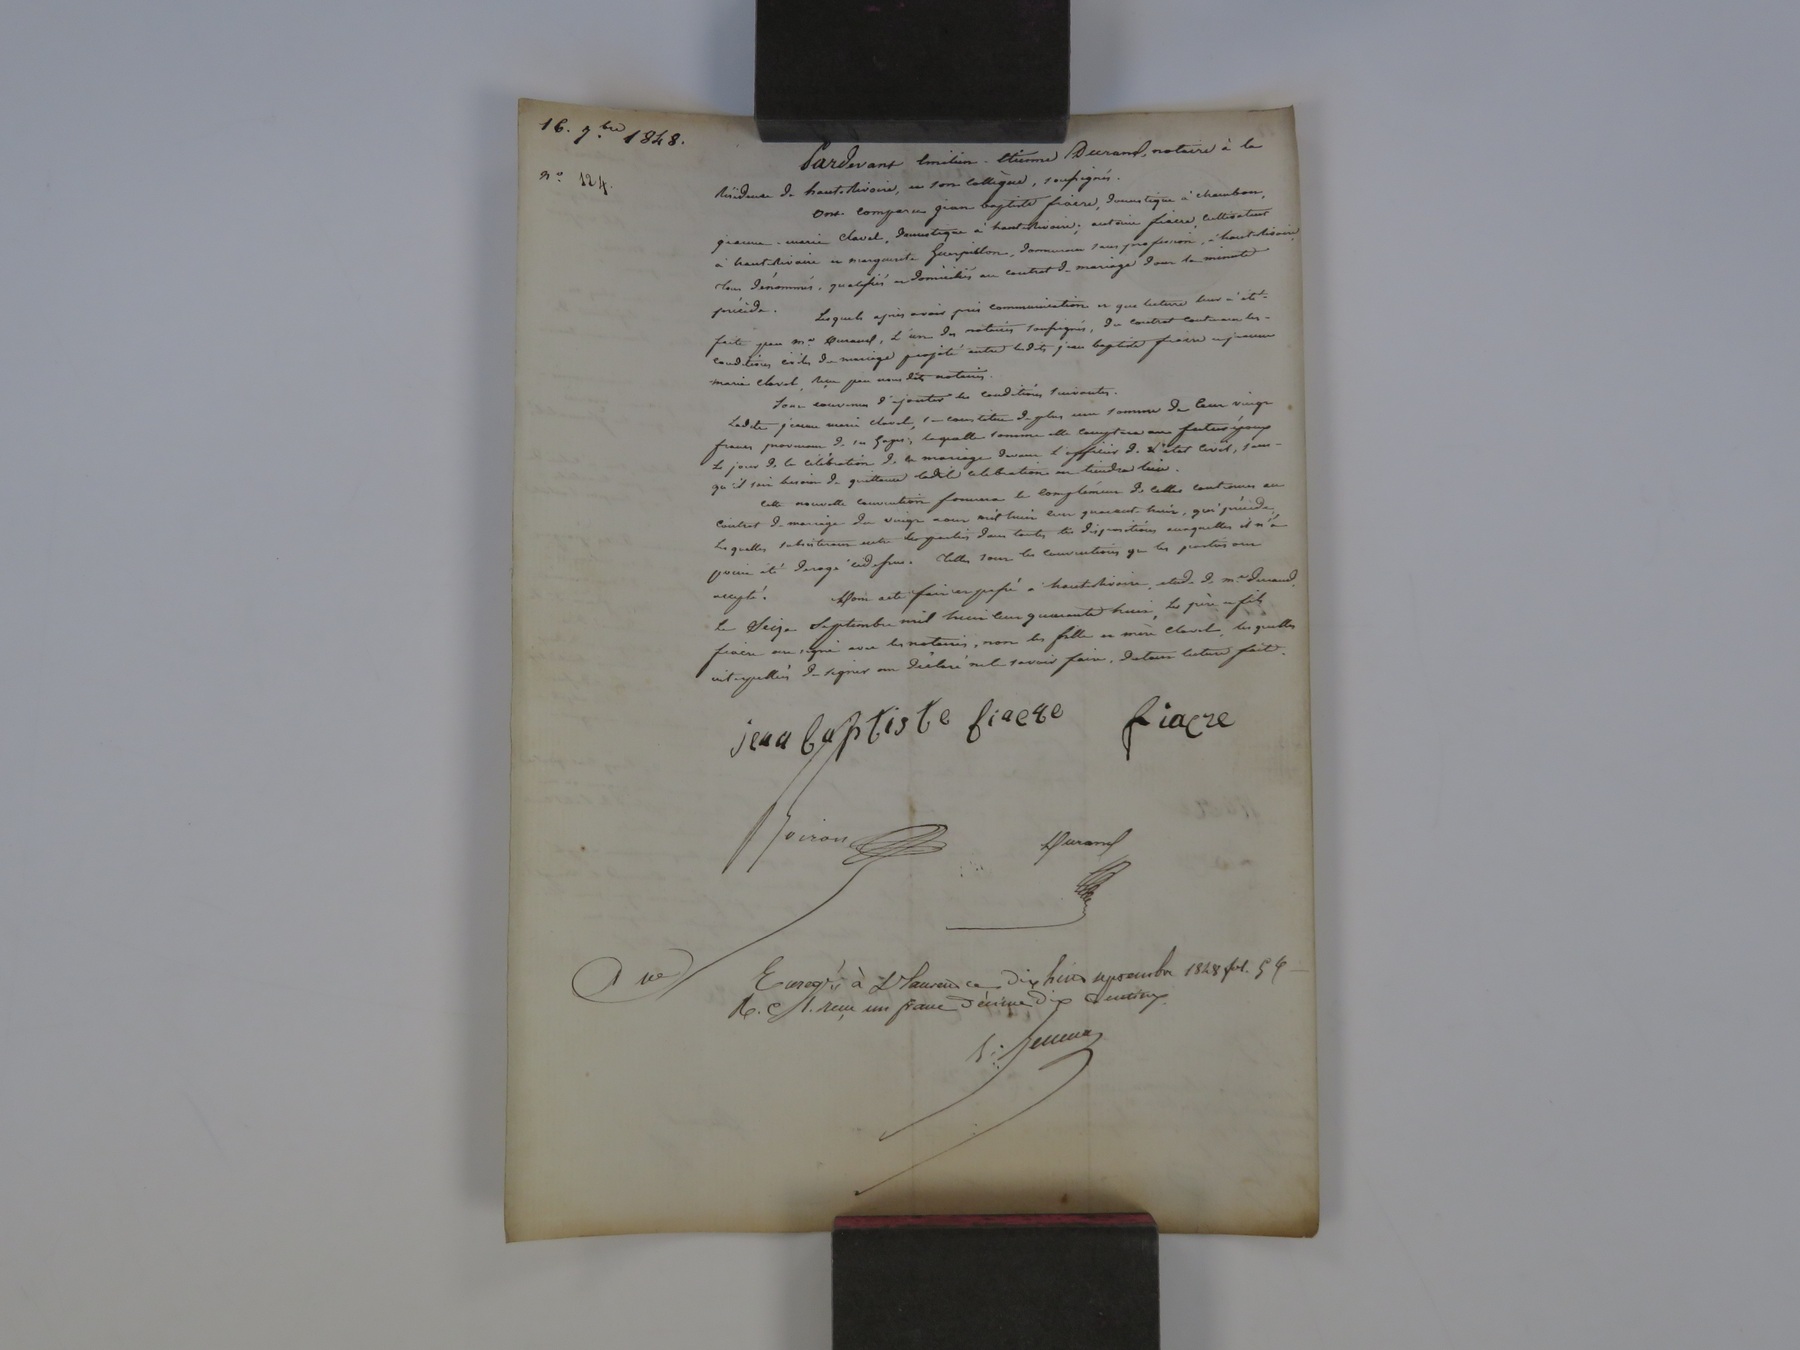 16. 7bre 1848.
n° 124.
Pardevant Emilien-Etienne Durand, notaire à la
Résidence de haut-Rivoire, et son collègue, soussignés.
Ont comparu jean baptiste fiacre, domestique à chambon,
jeanne-marie Clavel, domestique à haut-Rivoire; antoine fiacre, cultivateur
à haut-Rivoire et marguerite Guerpillon, demeurant sans profession, à haut-Rivoire,
tous dénommés, qualifiés et domiciliés au contrat de mariage dont la minute
précède.
Lesquels après avoir pris communication et que lecture leur a été
faite par me Durand, l'un des notaires soussignés, du contrat contenant les
conditions civiles du mariage projeté entre lesdits jean baptiste fiacre et jeanne
marie Clavel, reçu par nous dits notaires.
Sont convenus d'ajouter les conditions suivantes.
Ladite jeanne marie Clavel, se constitue de plus une somme de Cent vingt
francs provenant de ses gages; laquelle somme elle comptera au futur époux
le jour de la célébration de le mariage devant l'officier de l'état civil, sans
qu'il soit besoin de quittance ladite célébration en tiendra lieu.
Cette nouvelle convention formera le complément de celles contenues au
contrat de mariage du vingt aout mil huit cent quarante huit, qui précède,
lesquelles subsisteront entre les parties dans toutes les dispositions auxquelles il n'a
point été dérogé ci-dessus. Telles sont les conventions que les parties ont
accepté.
Dont acte fait et passé à haut-Rivoire, étude de me durand,
Le Seize Septembre mil huit cent quarante huit, Les père et fils
fiacre ont signé avec les notaires, non les fille et mère Clavel, lesquelles
interpellées de signer ont déclaré ne le savoir faire, de tout lecture faite.
jean baptiste fiacre fiacre
Poiron
Durand
Enregé à St Laurent ce dix huit septembre 1848 fol. 54
R. C. 1. reçu un franc décime dix centimes